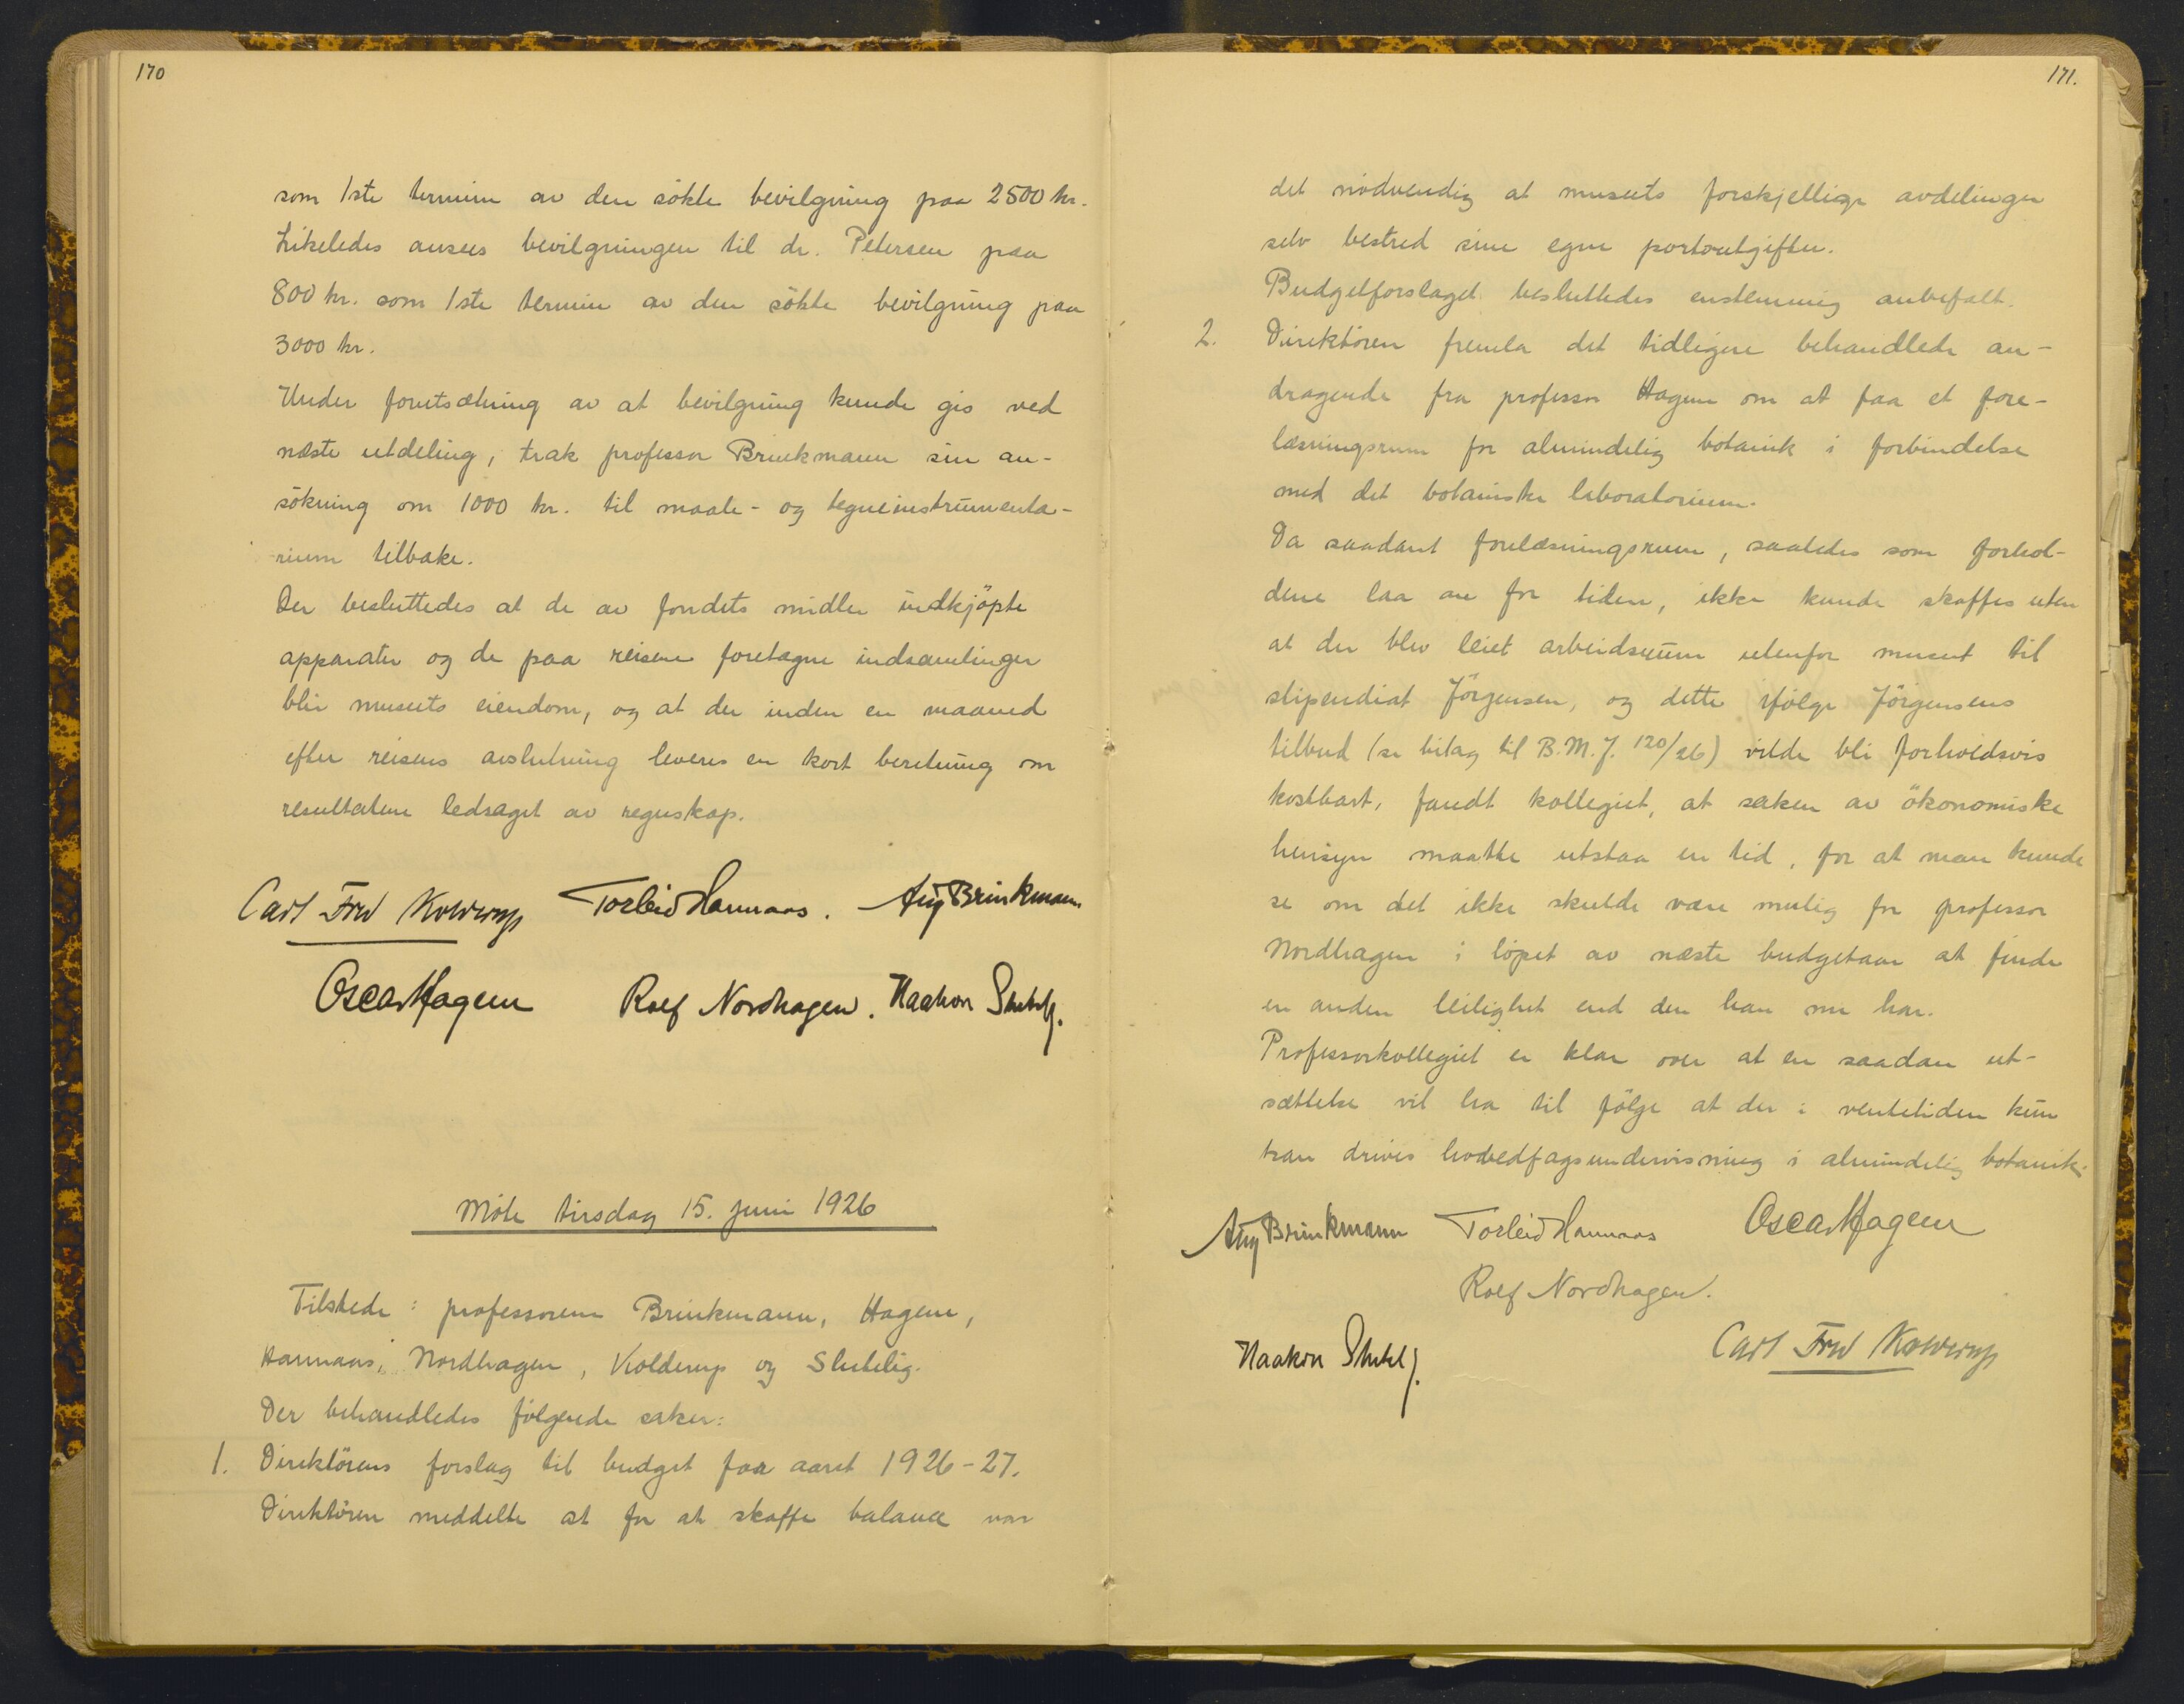 170
som 1ste termin av den sökte bevilgning paa 2500 kr.
Likeledes ansees bevilgningen til dr. Petersen paa
800 kr. som 1ste termin av den sökte bevilgning paa
3000 kr.
Under forutsætning av at bevilgning kunde gis ved
næste utdeling, trak professor Brinkmann sin an-
sökning om 1000 kr. til maale- og tegneinstrumenta-
rium tilbake.
Der besluttedes at de av fondets midler indkjöpte
apparater og de paa reisene foretagne indsamlinger
blir museets eiendom, og at der inden en maaned
efter reisens avslutning leveres en kort beretning om
resultatene ledsaget av regnskap.
Carl Fred Kolderup Torleiv Hannaas. Aug Brinkmann
Oscar Hagem Rolf Nordhagen. Haakon Shetelig.
Möte tirsdag 15. juni 1926
Tilstede: professorene Brinkmann, Hagem,
Hannaas, Nordhagen, Kolderup og Shetelig.
Der behandledes fölgende saker:
1. Direktörens forslag til budget for aaret 1926-27.
Direktören meddelte at for at skaffe balance var
171.
det nödvendig at museets forskjellige avdelinger
selv bestred sine egne portoutgifter.
Budgetforslaget besluttedes enstemmig anbefalt.
2. Direktören fremla det tidligere behandlede an-
dragende fra professor Hagem om at faa et fore-
læsningsrum for almindelig botanik i forbindelse
med det botaniske laboratorium.
Da saadant forelæsningsrum, saaledes som forhol-
dene laa an for tiden, ikke kunde skaffes uten
at der blev leiet arbeidsrum utenfor museet til
stipendiat Jörgensen, og dette ifölge Jörgensens
tilbud (se bilag til B.M.J. 120/26) vilde bli forholdsvis
kostbart, fandt kollegiet, at saken av ökonomiske
hensyn maatte utstaa en tid, for at man kunde
se om det ikke skulde være mulig for professor
Nordhagen i löpet av næste budgetaar at finde
en anden leilighet end den han nu har.
Professorkollegiet er klar over at en saadan ut-
sættelse vil ha til fölge at der i ventetiden kun
kan drives hovedfagsundervisning i almindelig botanik.
Aug Brinkmann Torleiv Hannaas Oscar Hagem
Rolf Nordhagen.
Haakon Shetelig. Carl Fred Kolderup